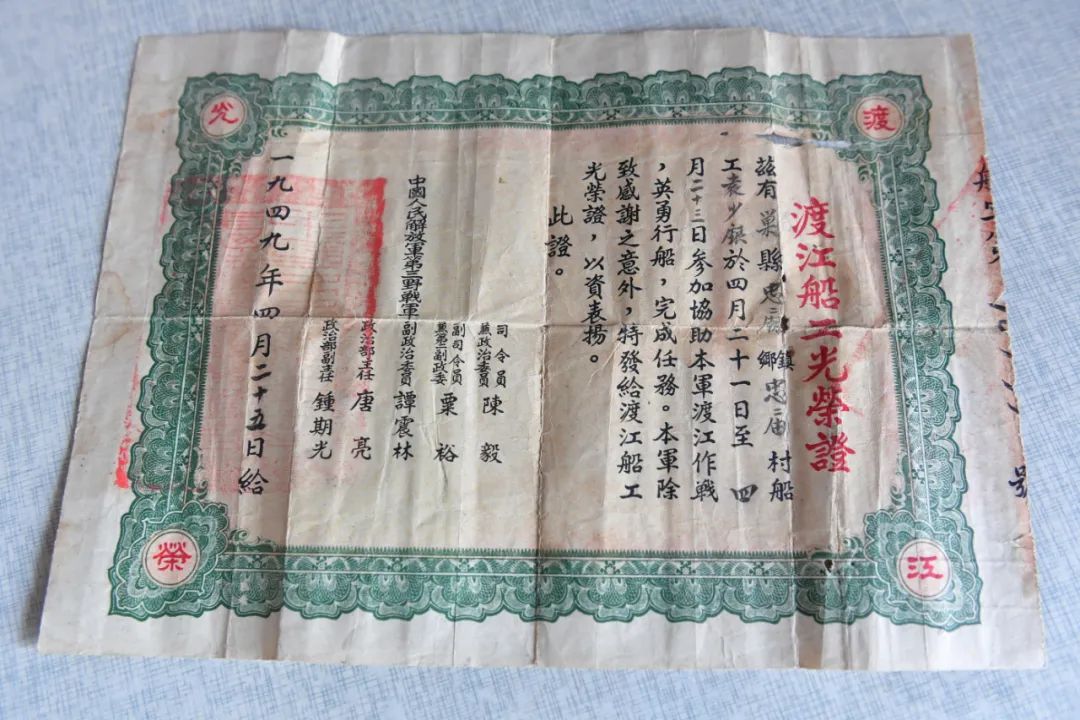 號
渡
江
光
榮
渡江船工光榮證
茲有巢縣忠庙鎮鄉忠庙村船
工袁少於四月二十一日至 四
月二十三日參加協助本軍渡江作戰
，英勇行船，完成任務。本軍除
致感謝之意外，特發給渡江船工
光榮證，以資表揚。
此證。
中國人民解放軍第三野戰軍
司令員
兼政治委員 陳毅
副司令員
兼第二副政委 粟裕
副政治委員 譚震林
政治部主任 唐亮
政治部副主任 鍾期光
一九四九年四月二十五日給